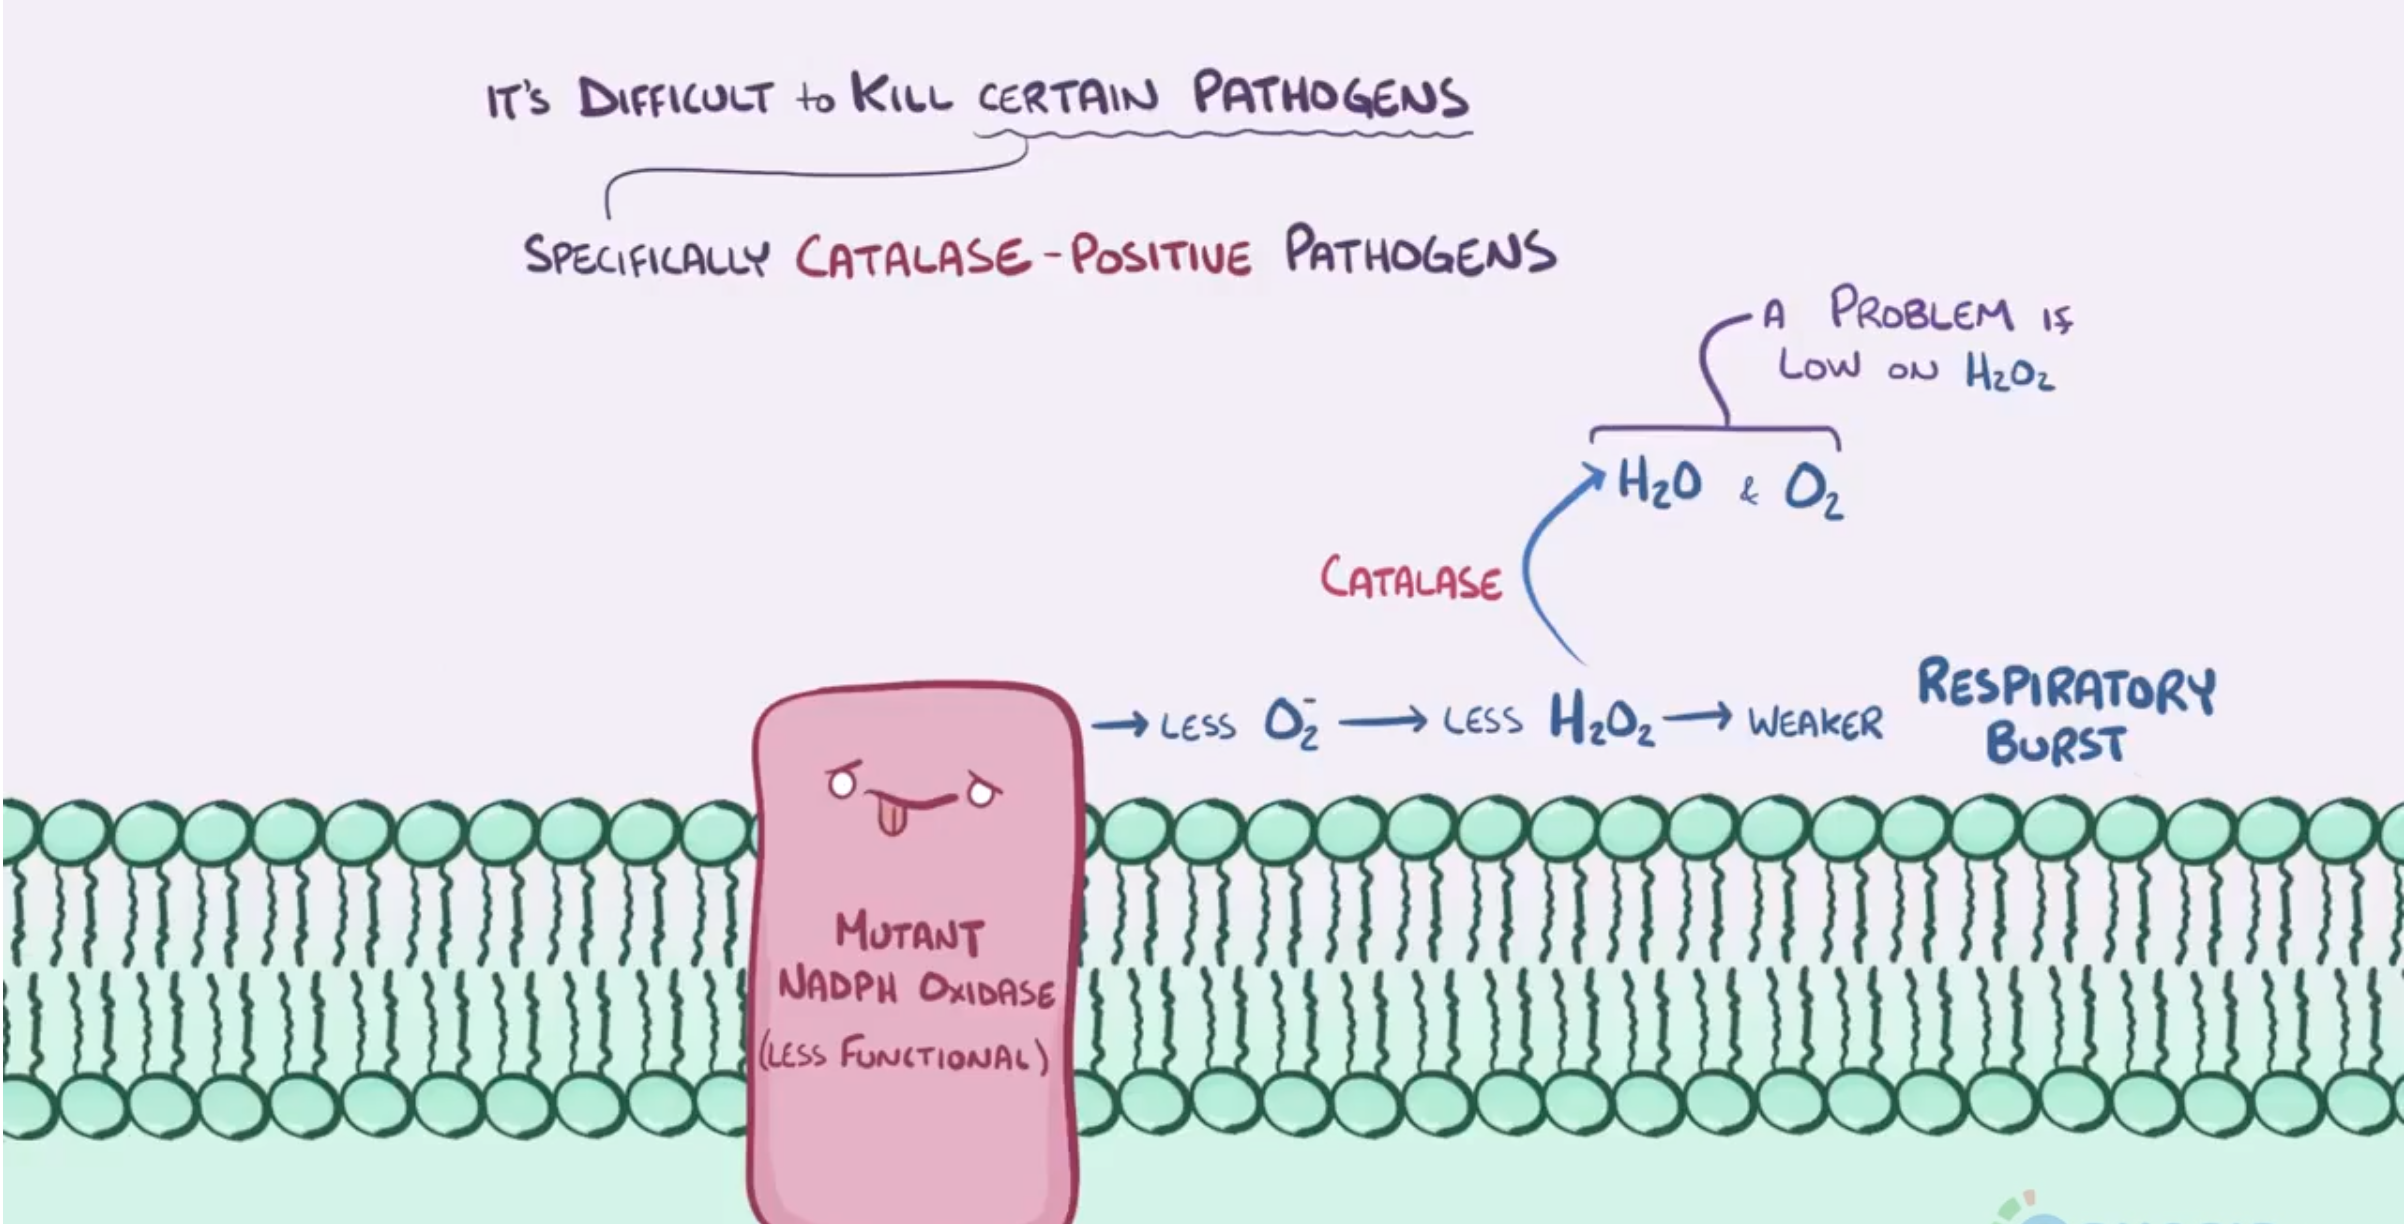 IT'S DIFFICULT to KILL CERTAIN PATHOGENS
SPECIFICALLY CATALASE-POSITIVE PATHOGENS
A PROBLEM IF
LOW ON H2O2
H2O & O2
CATALASE
→ LESS O2- → LESS H2O2 → WEAKER RESPIRATORY
BURST
MUTANT
NADPH OXIDASE
(LESS FUNCTIONAL)